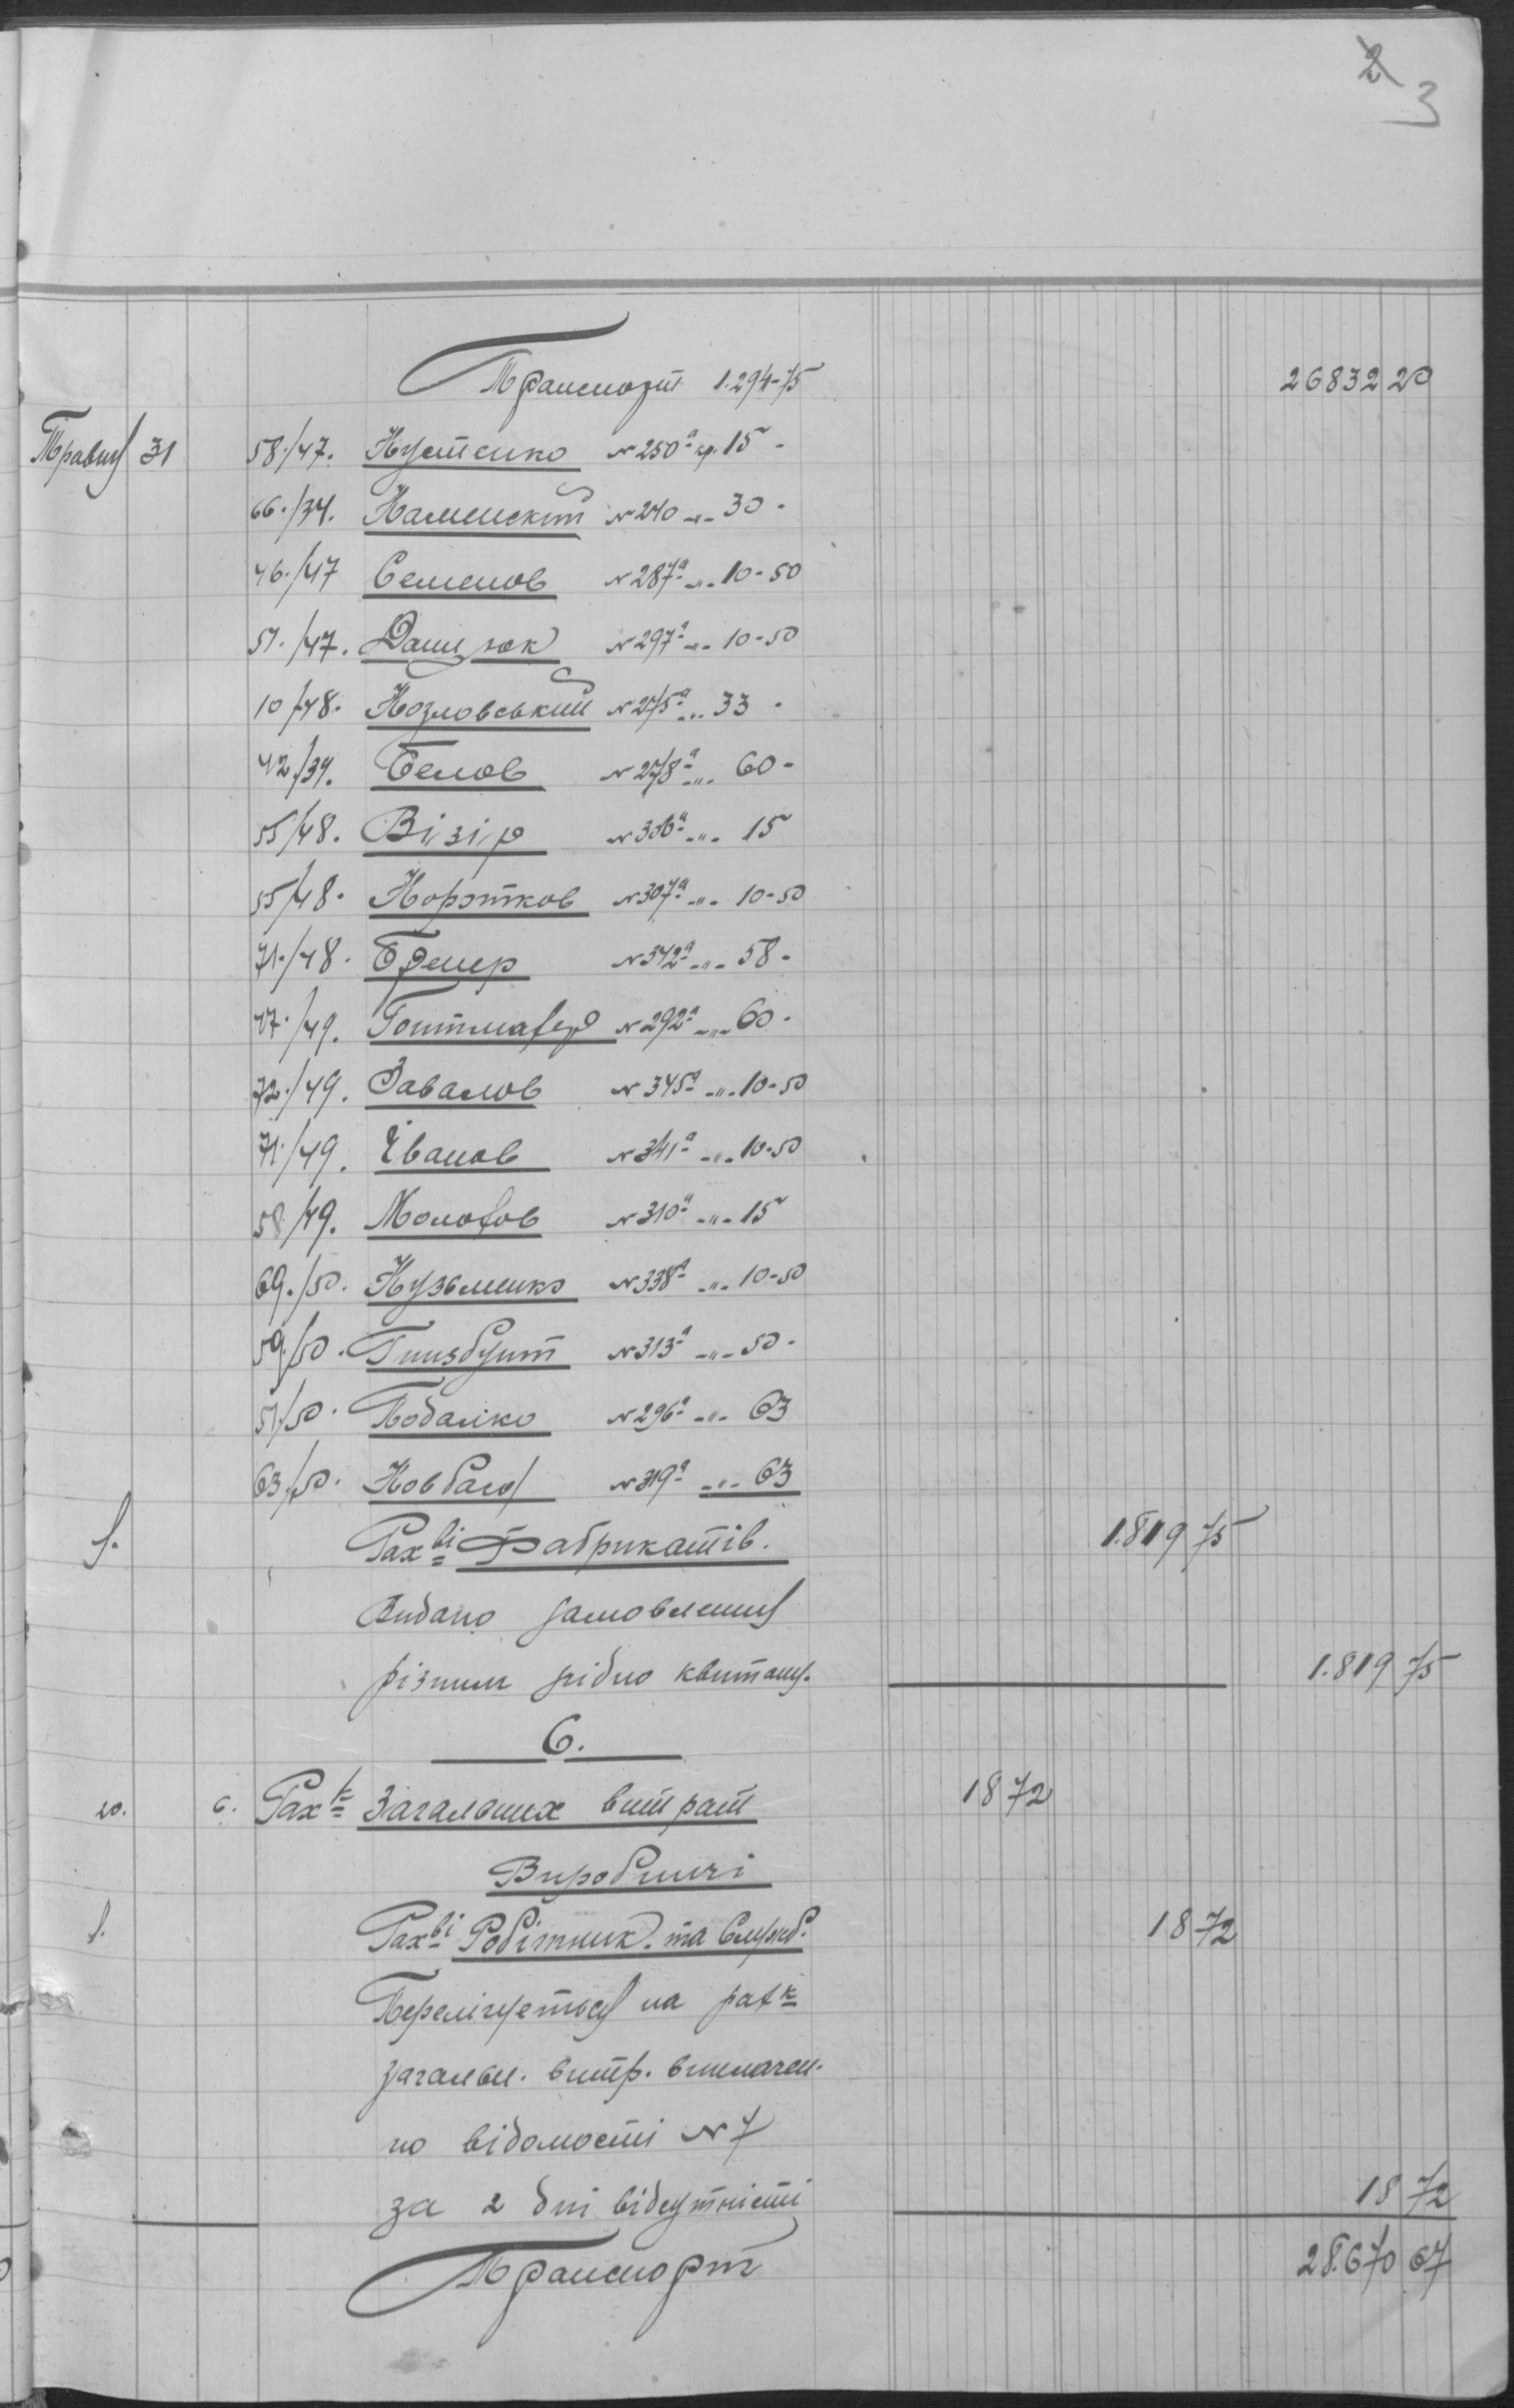 2 3
Транспорт 1.294-75 26832 20
Травня 31 58./47. Кустенко № 250а кр. 15 -
66./34. Каменский № 240 -"- 30 -
46./47 Семенов № 287а -"- 10-50
51./47. Данилюк № 297а -"- 10-50
10/48. Козловський № 275а -"- 33 -
42./39. Белов № 278а -"- 60 -
55/48. Візір № 306а -"- 15
55/48. Коротков № 307а -"- 10-50
71./48. Бремер № 342а -"- 58 -
47./49. № 292а -"- 60 -
72./49. Завалов № 345а -"- 10-50
71./49. Іванов № 341а -"- 10-50
58/49. № 310а -"- 15
69./50. Кузьменко № 338а -"- 10-50
59./50. Гинзбург № 313а -"- 50 -
51./50. Подалко № 296а -"- 63
63./50. Ковбаса № 319а -"- 63
1. Рахві Фабрикатів. 1.819 75
Видано замовлення
різним згідно квитанц. 1.819 75
6.
20. 6. Рахк Загальних витрат 18 72
Виробничі
1. Рахві Робітник. та Служб. 18 72
Перелічується на рахк
загальн. витр. виплачен.
по відомості № 7
за 2 дні відсутністі 18 72
Транспорт 28.670 67